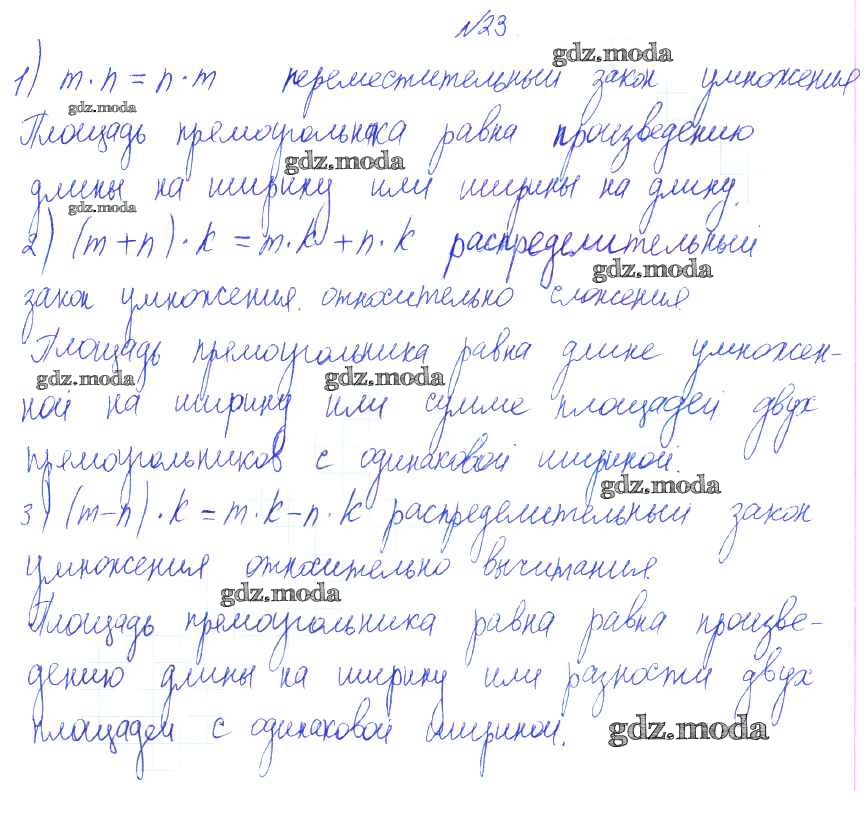 №23.
gdz.moda
1) m·n = n·m переместительный закон умножения
gdz.moda
Площадь прямоугольника равна произведению
gdz.moda
длины на ширину или ширины на длину.
gdz.moda
2) (m+n)·k = m·k+n·k распределительный
gdz.moda
закон умножения относительно сложения.
Площадь прямоугольника равна длине умножен-
gdz.moda gdz.moda
ной на ширину или сумме площадей двух
прямоугольников с одинаковой шириной.
gdz.moda
3) (m-n)·k = m·k-n·k распределительный закон
умножения относительно вычитания.
gdz.moda
Площадь прямоугольника равна равна произве-
дению длины на ширину или разности двух
площадей с одинаковой шириной.
gdz.moda